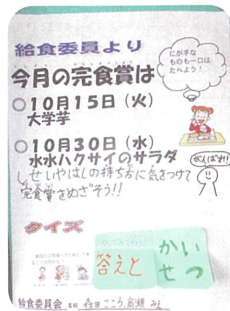 給食委員より
にが手な
ものも一口は
たべよう！
今月の完食賞は
○10月15日（火）
大学芋
○10月30日（水）
水水ハクサイのサラダ
しせいやはしの持ち方に気をつけて
完食賞をめざそう!!
がんばれ!
クイズ
答えと
かい
せつ
給食委員会